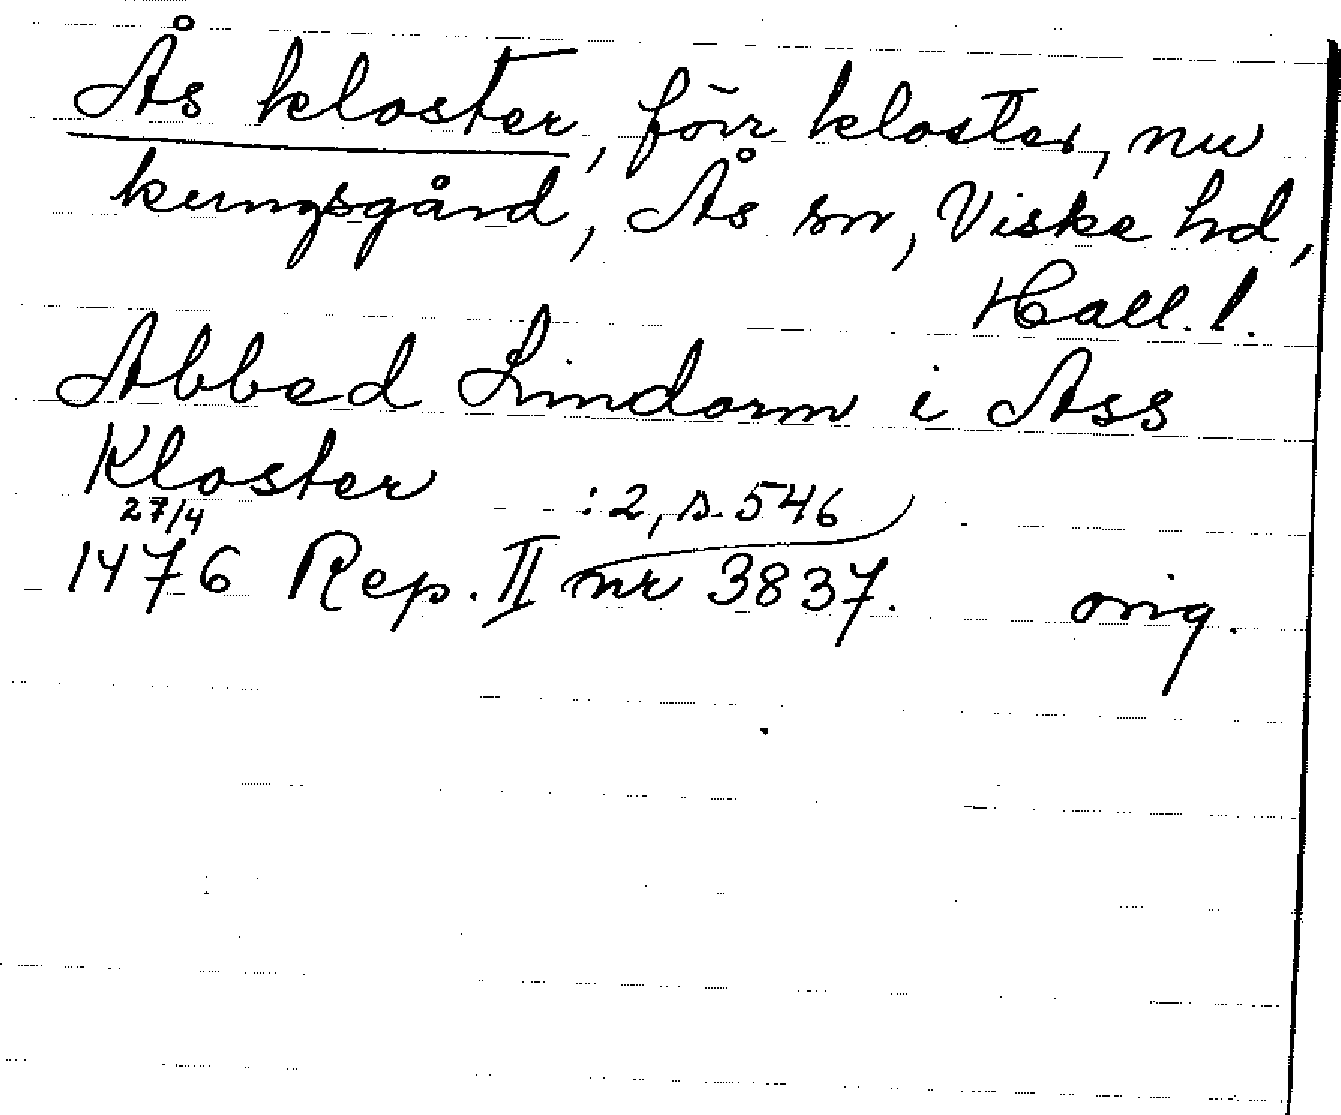 Ås kloster, förr kloster, nu
kungsgård, Ås sn, Viske hd,
Hall. l.
Abbed Lindorm i Ass
Kloster :2, s. 546
27/4
1476 Rep. II nr 3837. orig.